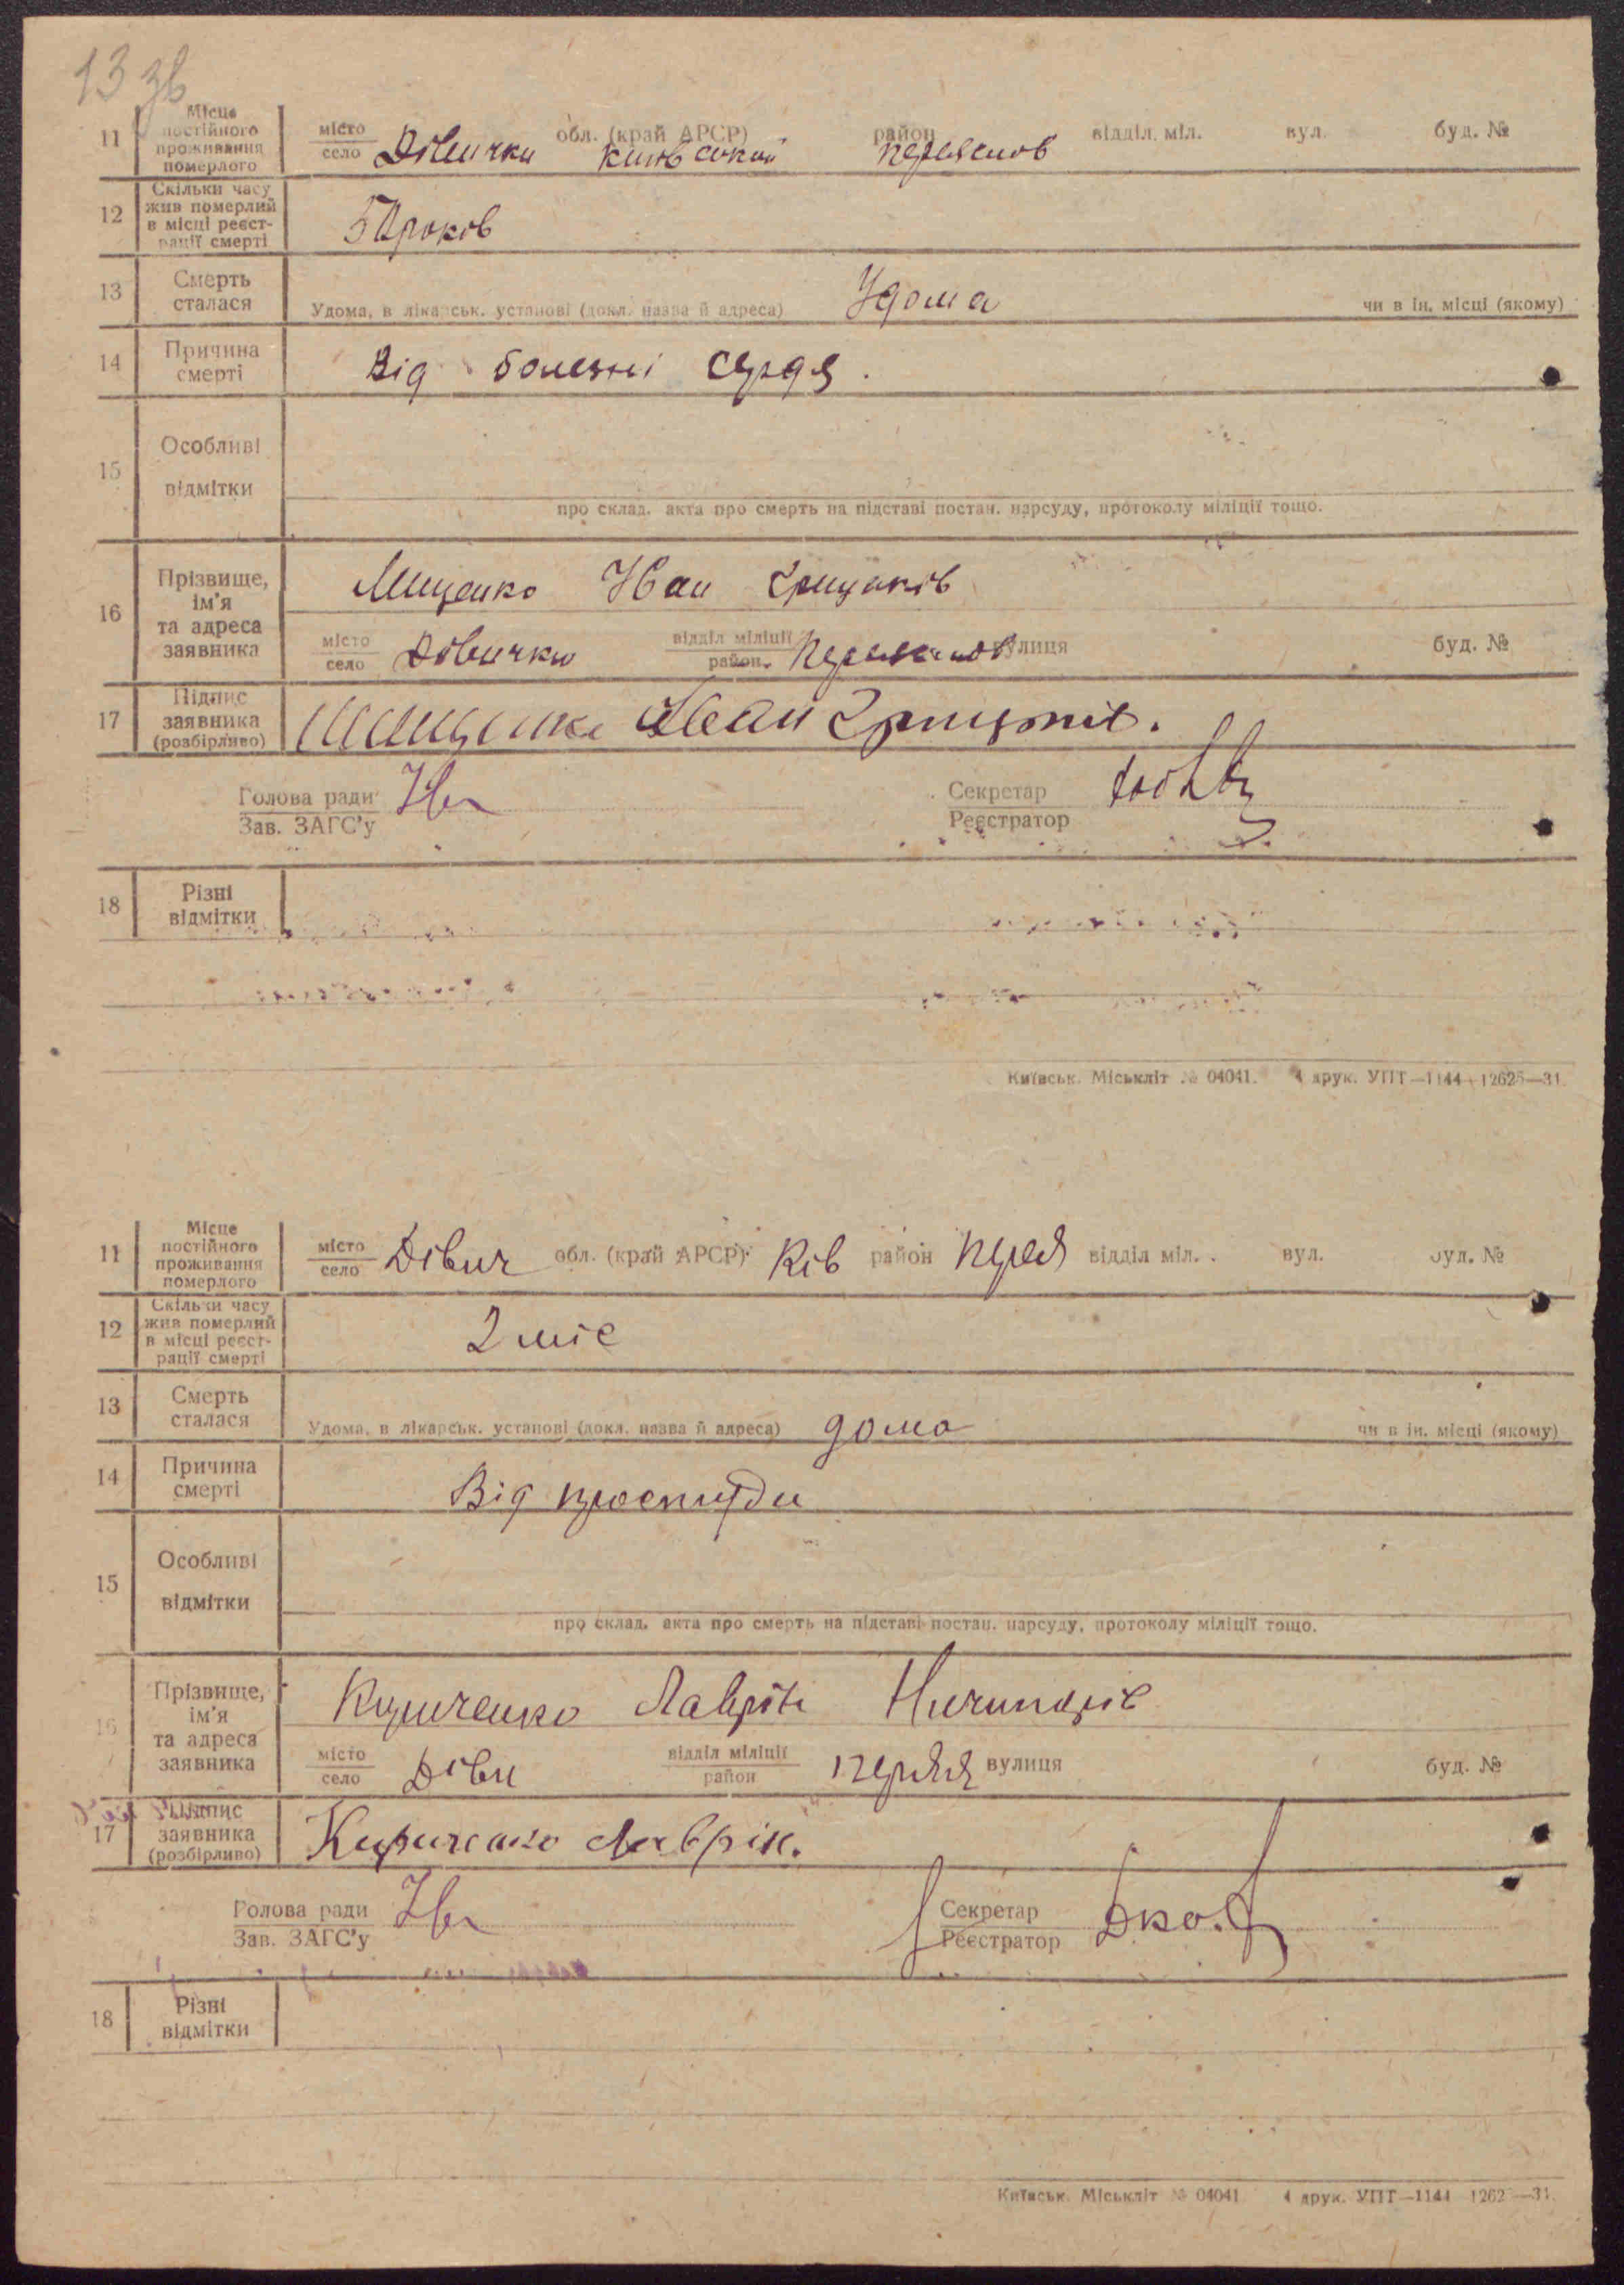 13 зв
11 Місце постійного проживання померлого місто село Дівички обл. (край АРСР) Киівськой район Переяслов відділ. міл. вул. буд. №
12 Скільки часу жив померлий в місці реєстрації смерті років
13 Смерть сталася Удома, в лікарськ. установі (докл. назва й адреса) Удома чи в ін. місці (якому)
14 Причина смерті Від болезні сердя.
15 Особливі відмітки
про склад. акта про смерть на підставі постан. нарсуду, протоколу міліції тощо.
16 Прізвище, ім'я та адреса заявника Мищенко Иван Грицьков
місто село Дівички відділ міліції район Переяслов вулиця буд. №
17 Підпис заявника (розбірливо) Мищенко Иван
Голова ради Зав. ЗАГС'у Секретар Реєстратор
18 Різні відмітки
Київськ. Міськліт № 04041. 4 друк. УПТ—1144—12625—31.
11 Місце постійного проживання померлого місто село Дівич обл. (край АРСР) Ків район Перея відділ міл. вул. буд. №
12 Скільки часу жив померлий в місці реєстрації смерті 2 міс
13 Смерть сталася Удома, в лікарськ. установі (докл. назва й адреса) дома чи в ін. місці (якому)
14 Причина смерті Від простуди
15 Особливі відмітки
про склад. акта про смерть на підставі постан. нарсуду, протоколу міліції тощо.
16 Прізвище, ім'я та адреса заявника Кириченко Лаврін
місто село Діви відділ міліції район вулиця буд. №
17 Підпис заявника (розбірливо) Кириченко Лаврін.
Голова ради Зав. ЗАГС'у Секретар Реєстратор
18 Різні відмітки
Київськ. Міськліт № 04041 4 друк. УПТ—1144